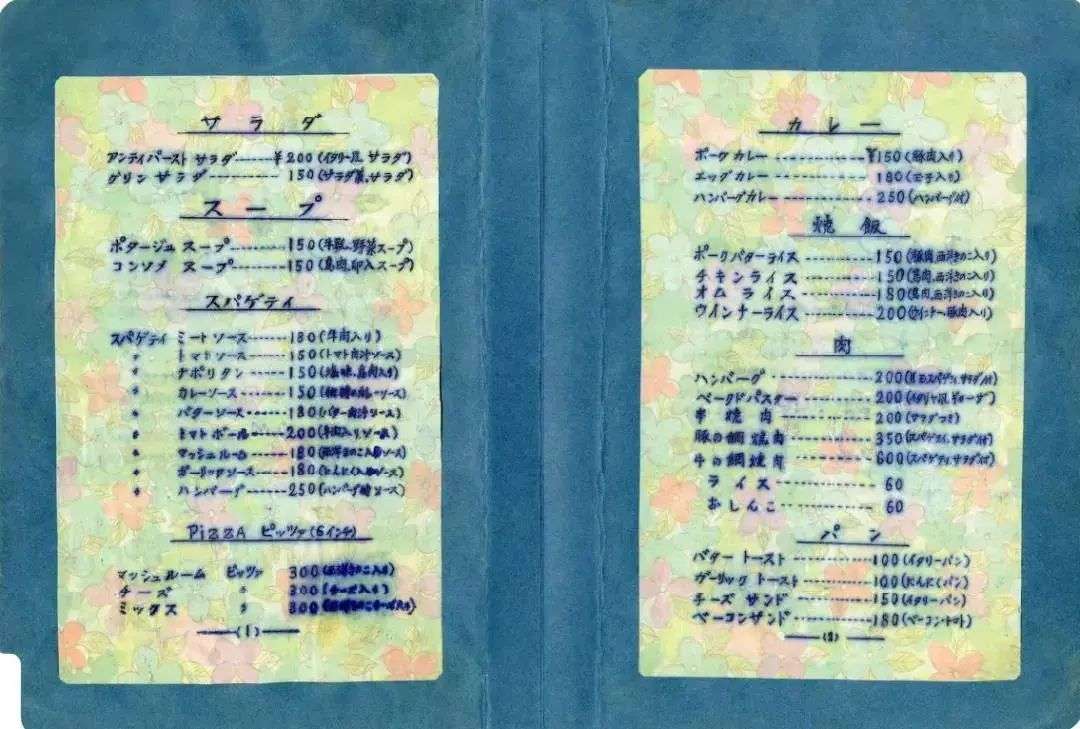 サラダ
アンティパースト サラダ-----¥200(イタリー風サラダ)
グリン サラダ------150(サラダ菜、サラダ)
スープ
ポタージュ スープ------150(牛乳、野菜スープ)
コンソメ スープ------150(鳥肉、卵入スープ)
スパゲティ
スパゲティ ミートソース-----180(牛肉入り)
〃 トマトソース-----150(トマト肉汁ソース)
〃 ナポリタン-----150(塩味、鳥肉入り)
〃 カレーソース-----150
〃 バターソース-----180(バター肉汁ソース)
〃 トマトボール-----200
〃 マッシュルーム-----180(西洋きのこ入りソース)
〃 ガーリックソース-----180(にんにく入りソース)
〃 ハンバーグ-----250
PiZZA ピッツァ(6インチ)
マッシュルーム ピッツァ 300(西洋きのこ入り)
チーズ 〃 300(チーズ入り)
ミックス 〃 300
(1)
カレー
ポークカレー--------¥150(豚肉入り)
エッグカレー--------180(玉子入り)
ハンバーグカレー------250(ハンバーグ付)
焼飯
ポークバターライス-------150(豚肉、西洋きのこ入り)
チキンライス-------150(鳥肉、西洋きのこ入り)
オムライス-------180(鳥肉、西洋きのこ入り)
ウインナーライス-------200(ウインナー豚肉入り)
肉
ハンバーグ-------200(スパゲティ、サラダ付)
ベークドパスター-------200(イタリヤ風ギョーザ)
串焼肉-------200(サラダつき)
豚の網焼肉-------350(スパゲティ、サラダ付)
牛の網焼肉-------600(スパゲティ、サラダ付)
ライス------- 60
おしんこ------- 60
パン
バタートースト-------100(イタリーパン)
ガーリックトースト-----100(にんにくパン)
チーズ サンド-------150(イタリーパン)
ベーコンサンド-------180(ベーコン・トマト)
(2)